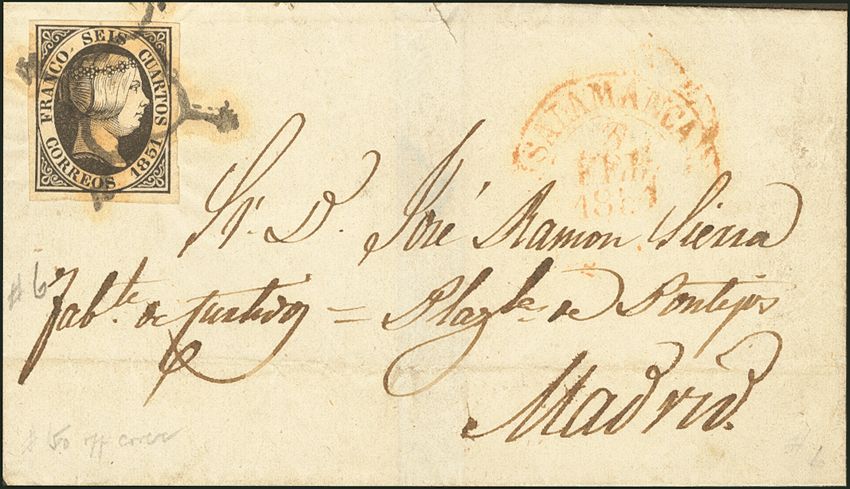 FRANCO. SEIS CUARTOS
CORREOS 1851.
SALAMANCA
FEB.
1851
Sr. D. José Ramon Sierra
Fabte. de Curtidos = Plazla. de Pontejos
Madrid.
#6
$50 off cover
#6